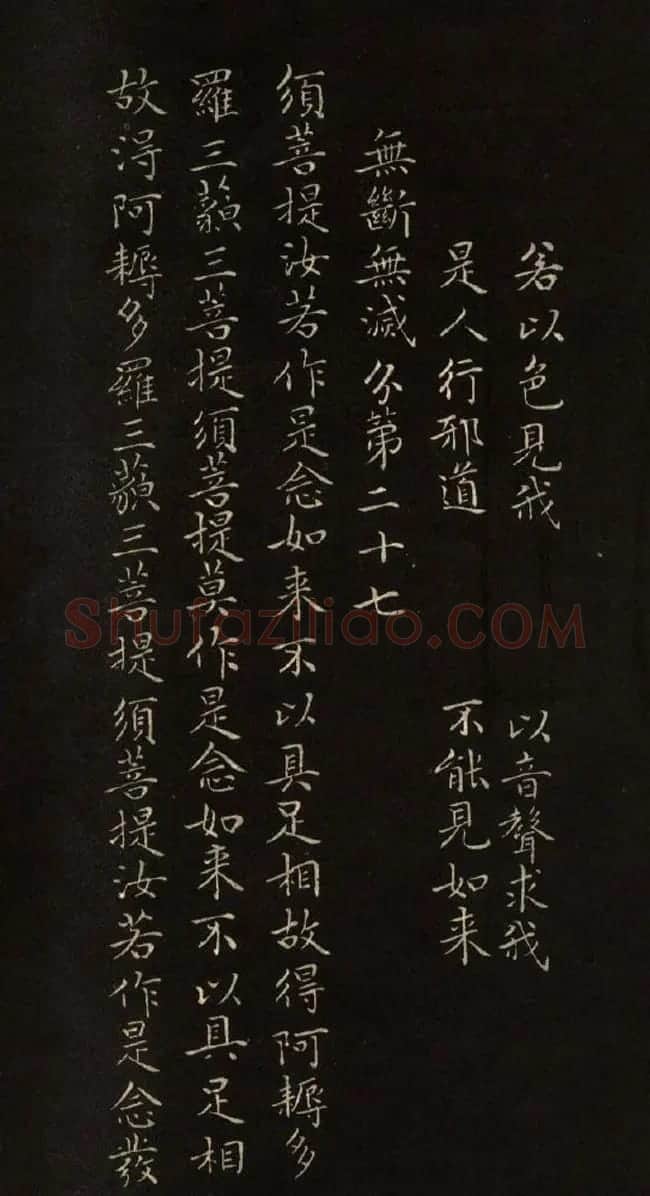 若以色見我 以音聲求我
是人行邪道 不能見如来
無斷無滅分第二十七
須菩提汝若作是念如来不以具足相故得阿耨多
羅三藐三菩提須菩提莫作是念如来不以具足相
故得阿耨多羅三藐三菩提須菩提汝若作是念發
Shufaziliao.COM